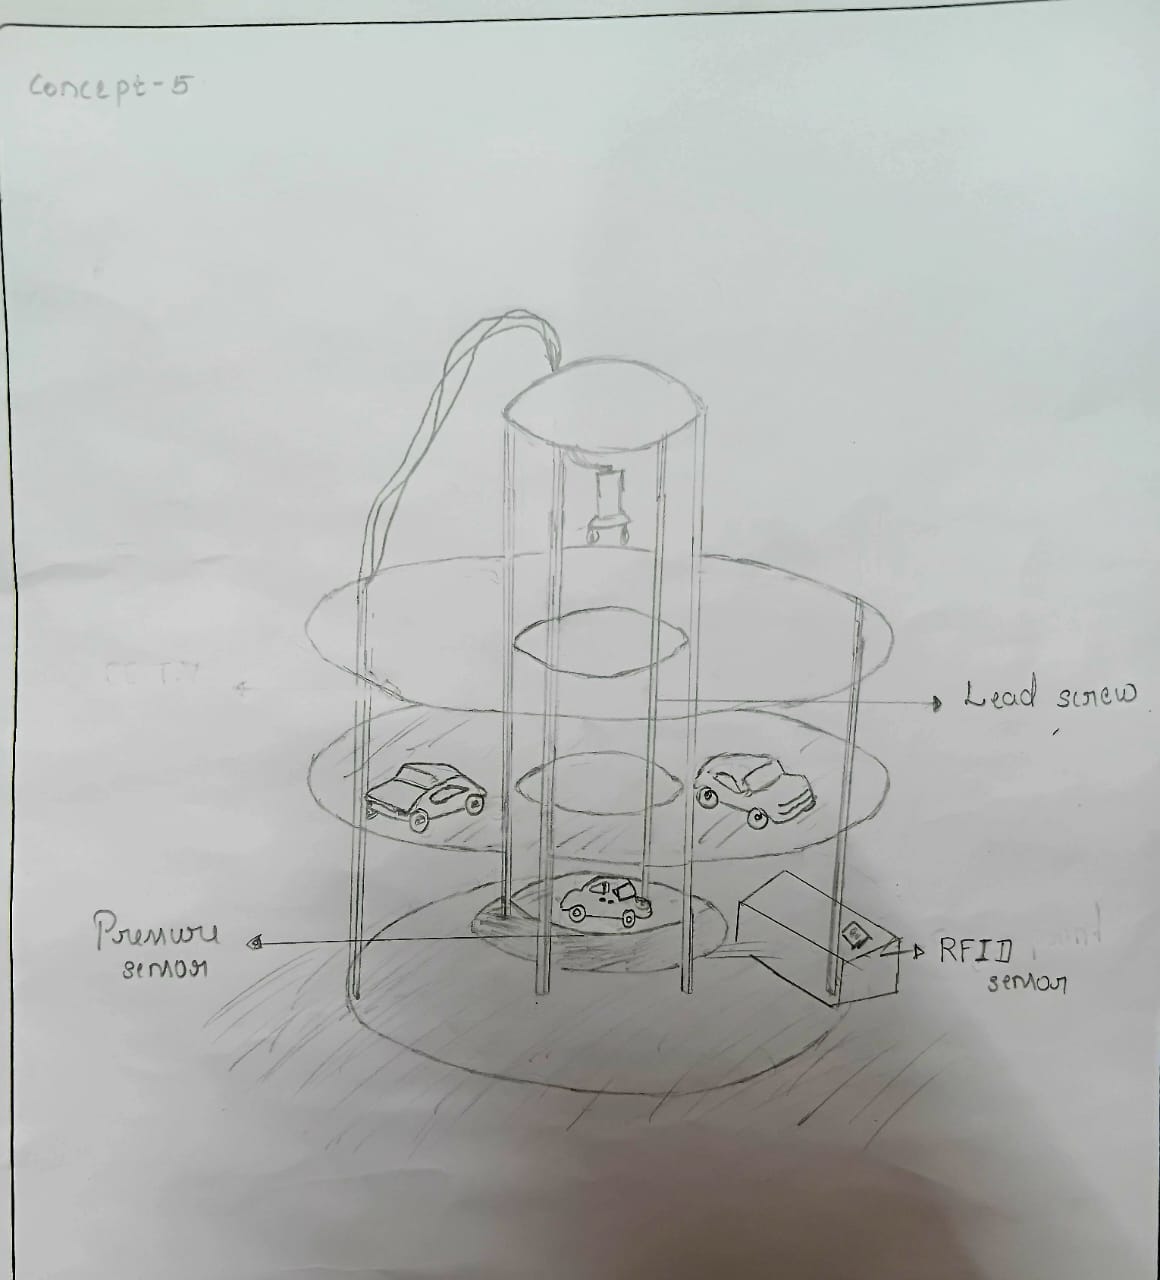 Concept-5
Lead screw
Pressure
sensor
RFID
sensor